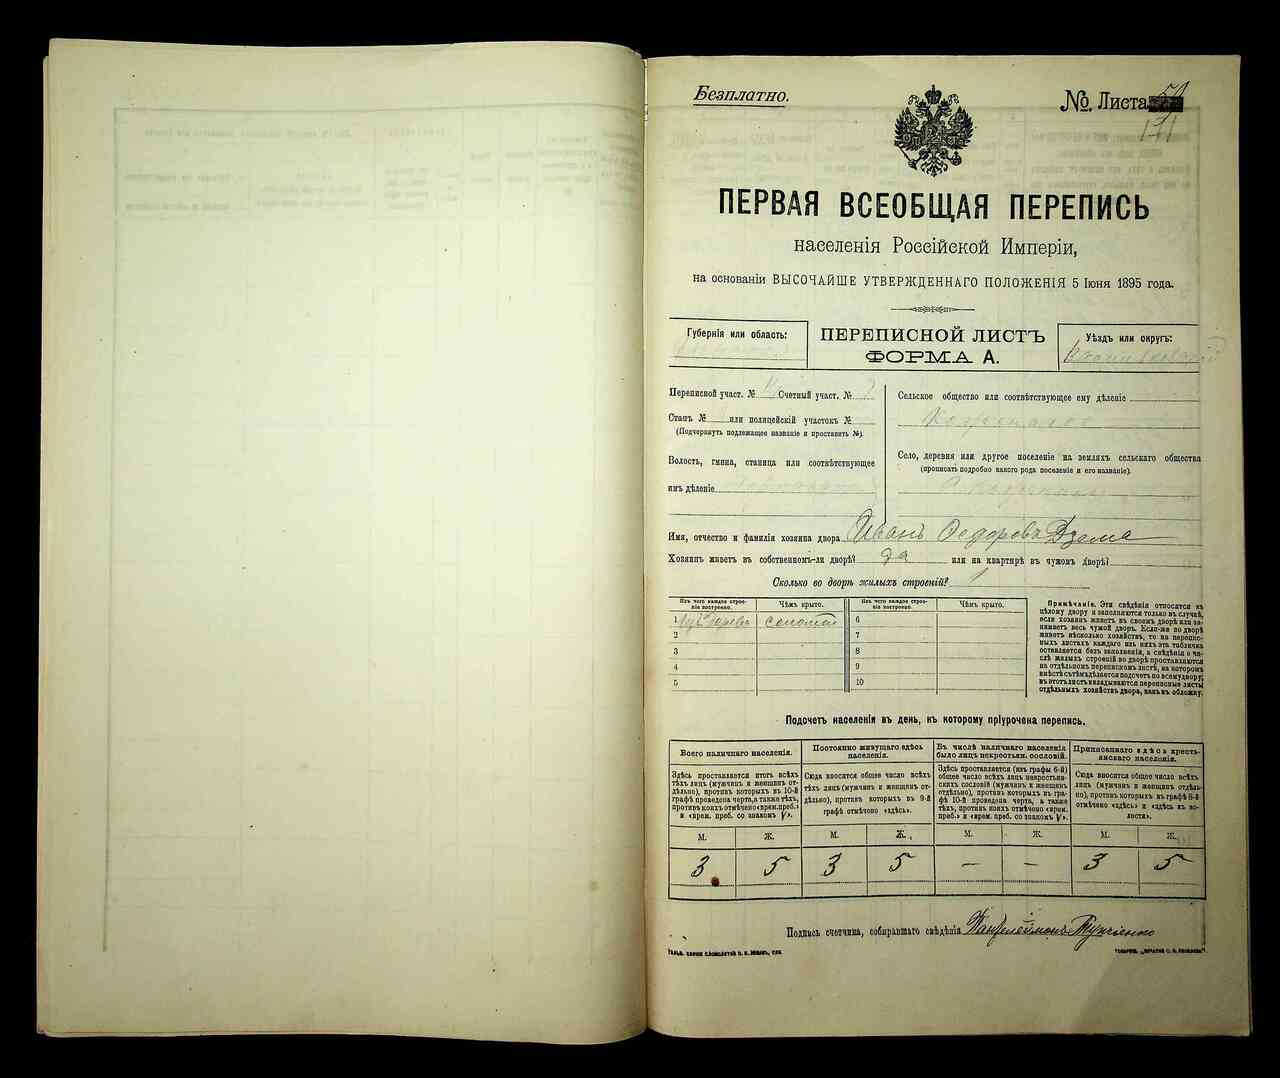 Безплатно.
№ Листа
171
ПЕРВАЯ ВСЕОБЩАЯ ПЕРЕПИСЬ
населенія Россійской Имперіи,
на основаніи ВЫСОЧАЙШЕ УТВЕРЖДЕННАГО ПОЛОЖЕНІЯ 5 Іюня 1895 года.
Губернія или область:
ПЕРЕПИСНОЙ ЛИСТЪ
ФОРМА А.
Уѣздъ или округъ:
Переписной участ. № Счетный участ. №
Станъ № или полицейскій участокъ №
(Подчеркнуть подлежащее названіе и проставить №).
Волость, гмина, станица или соотвѣтствующее
имъ дѣленіе
Сельское общество или соотвѣтствующее ему дѣленіе
Село, деревня или другое поселеніе на земляхъ сельскаго общества
(прописать подробно какого рода поселеніе и его названіе).
Имя, отчество и фамилія хозяина двора Иванъ Федоровъ Дзема
Хозяинъ живетъ въ собственномъ-ли дворѣ? да или на квартирѣ въ чужомъ дворѣ?
Сколько во дворѣ жилыхъ строеній? 1
Изъ чего каждое строе-
ніе построено.
Чѣмъ крыто.
Изъ чего каждое строе-
ніе построено.
Чѣмъ крыто.
1 изъ дерева соломой 6
2 7
3 8
4 9
5 10
Примѣчаніе. Эти свѣдѣнія относятся къ
цѣлому двору и заполняются только въ случаѣ,
если хозяинъ живетъ въ своемъ дворѣ или за-
нимаетъ весь чужой дворъ. Если-же во дворѣ
живетъ нѣсколько хозяйствъ, то на переписн-
ыхъ листахъ каждаго изъ нихъ эта табличка
оставляется безъ заполненія, а свѣдѣнія о чи-
слѣ жилыхъ строеній во дворѣ проставляются
на отдѣльномъ переписномъ листѣ, на которомъ
вмѣстѣ съ тѣмъ дѣлается подсчетъ по всему двору;
въ этотъ листъ вкладываются переписные листы
отдѣльныхъ хозяйствъ двора, какъ въ обложку.
Подсчетъ населенія въ день, къ которому пріурочена перепись.
Всего наличнаго населенія.
Постоянно живущаго здѣсь
населенія.
Въ числѣ наличнаго населенія
было лицъ некрестьян. сословій.
Приписаннаго здѣсь кресть-
янскаго населенія.
Здѣсь проставляется итогъ всѣхъ
тѣхъ лицъ (мужчинъ и женщинъ от-
дѣльно), противъ которыхъ въ 10-й
графѣ проведена черта, а также тѣхъ,
противъ коихъ отмѣчено «врем. преб.»
и «врем. преб. со знакомъ V».
Сюда вносится общее число всѣхъ
тѣхъ лицъ (мужчинъ и женщинъ от-
дѣльно), противъ которыхъ въ 9-й
графѣ отмѣчено «здѣсь».
Здѣсь проставляется (изъ графы 6-й)
общее число всѣхъ лицъ некрестьян-
скихъ сословій (мужчинъ и женщинъ
отдѣльно), противъ которыхъ въ гра-
фѣ 10-й проведена черта, а также
тѣхъ, противъ коихъ отмѣчено «врем.
преб.» и «врем. преб. со знакомъ V».
Сюда вносится общее число всѣхъ
лицъ (мужчинъ и женщинъ отдѣль-
но), противъ которыхъ въ графѣ 8-й
отмѣчено «здѣсь» и «здѣсь въ во-
лости».
М. Ж. М. Ж. М. Ж. М. Ж.
3 5 3 5 — — 3 5
Подпись счетчика, собиравшаго свѣдѣнія Пантелеймонъ